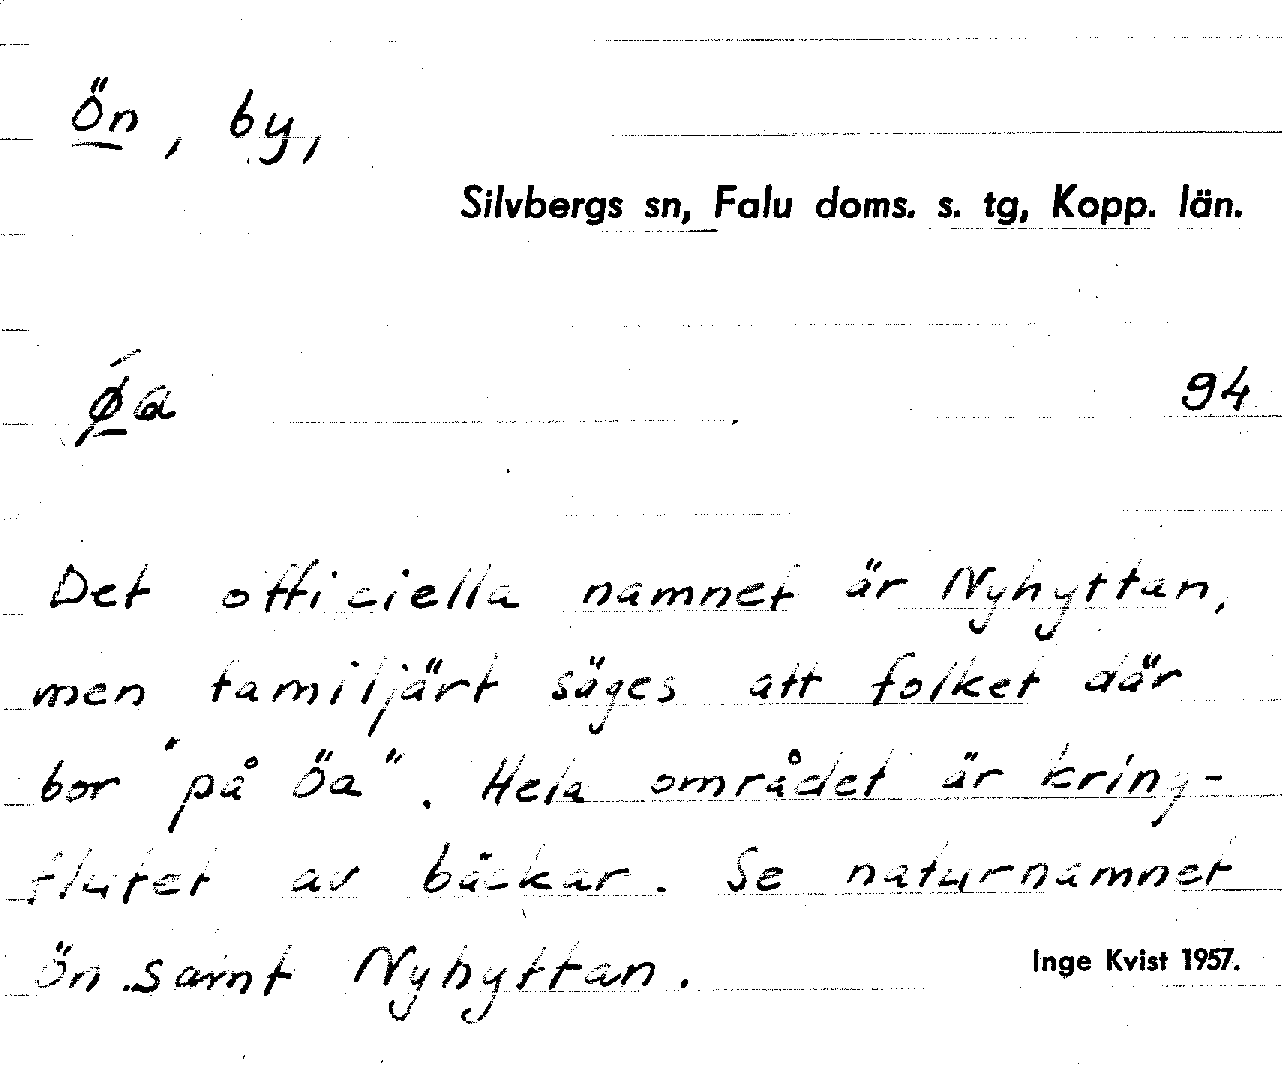 Ön, by,
Silvbergs sn, Falu doms. s. tg, Kopp. län.
ǿa 94
Det officiella namnet är Nyhyttan,
men familjärt säges att folket där
bor "på öa". Hela området är kring-
flutet av bäckar. Se naturnamnet
Ön samt Nyhyttan.
Inge Kvist 1957.